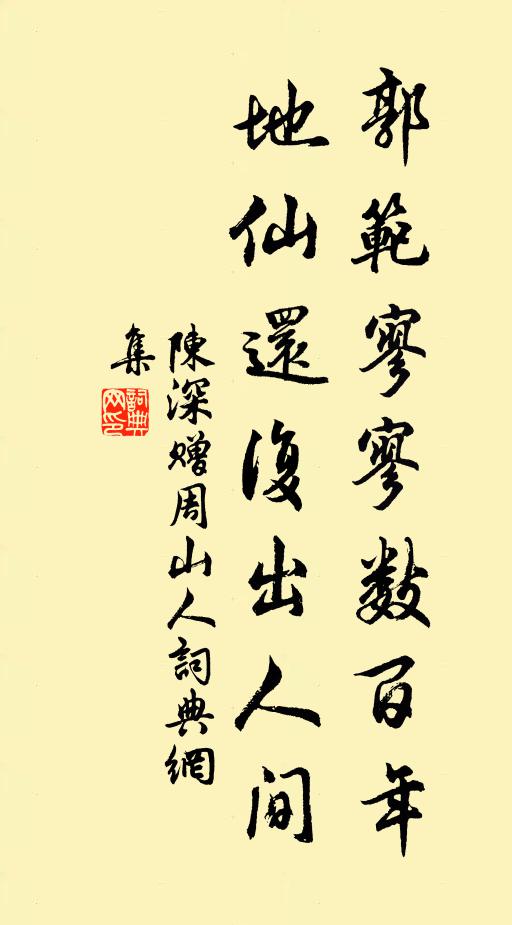 郭範寥寥数百年
地仙還復出人间
陳深贈周山人詞典網
集
詞典
网印